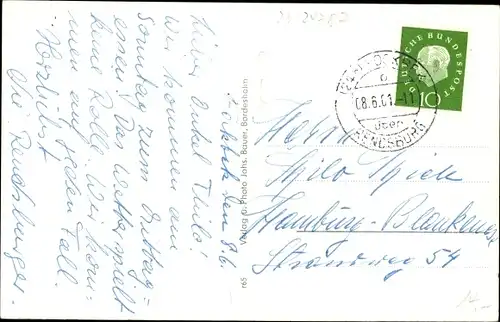 24 24782
den 8.6.
Lieber Onkel Thilo!
Wir kommen am
Sonntag zum Mittag-
essen. Das Wetter spielt
keine Rolle. Wir kom-
men auf jeden Fall.
Herzlichst
die Rendsburger.
Verlag u. Photo Johs. Bauer, Bordesholm
r65
DEUTSCHE BUNDESPOST
10
08.6.61.-11
über
RENDSBURG
Herrn
Thilo Thiele
Hamburg-Blankenese
Strandweg 54